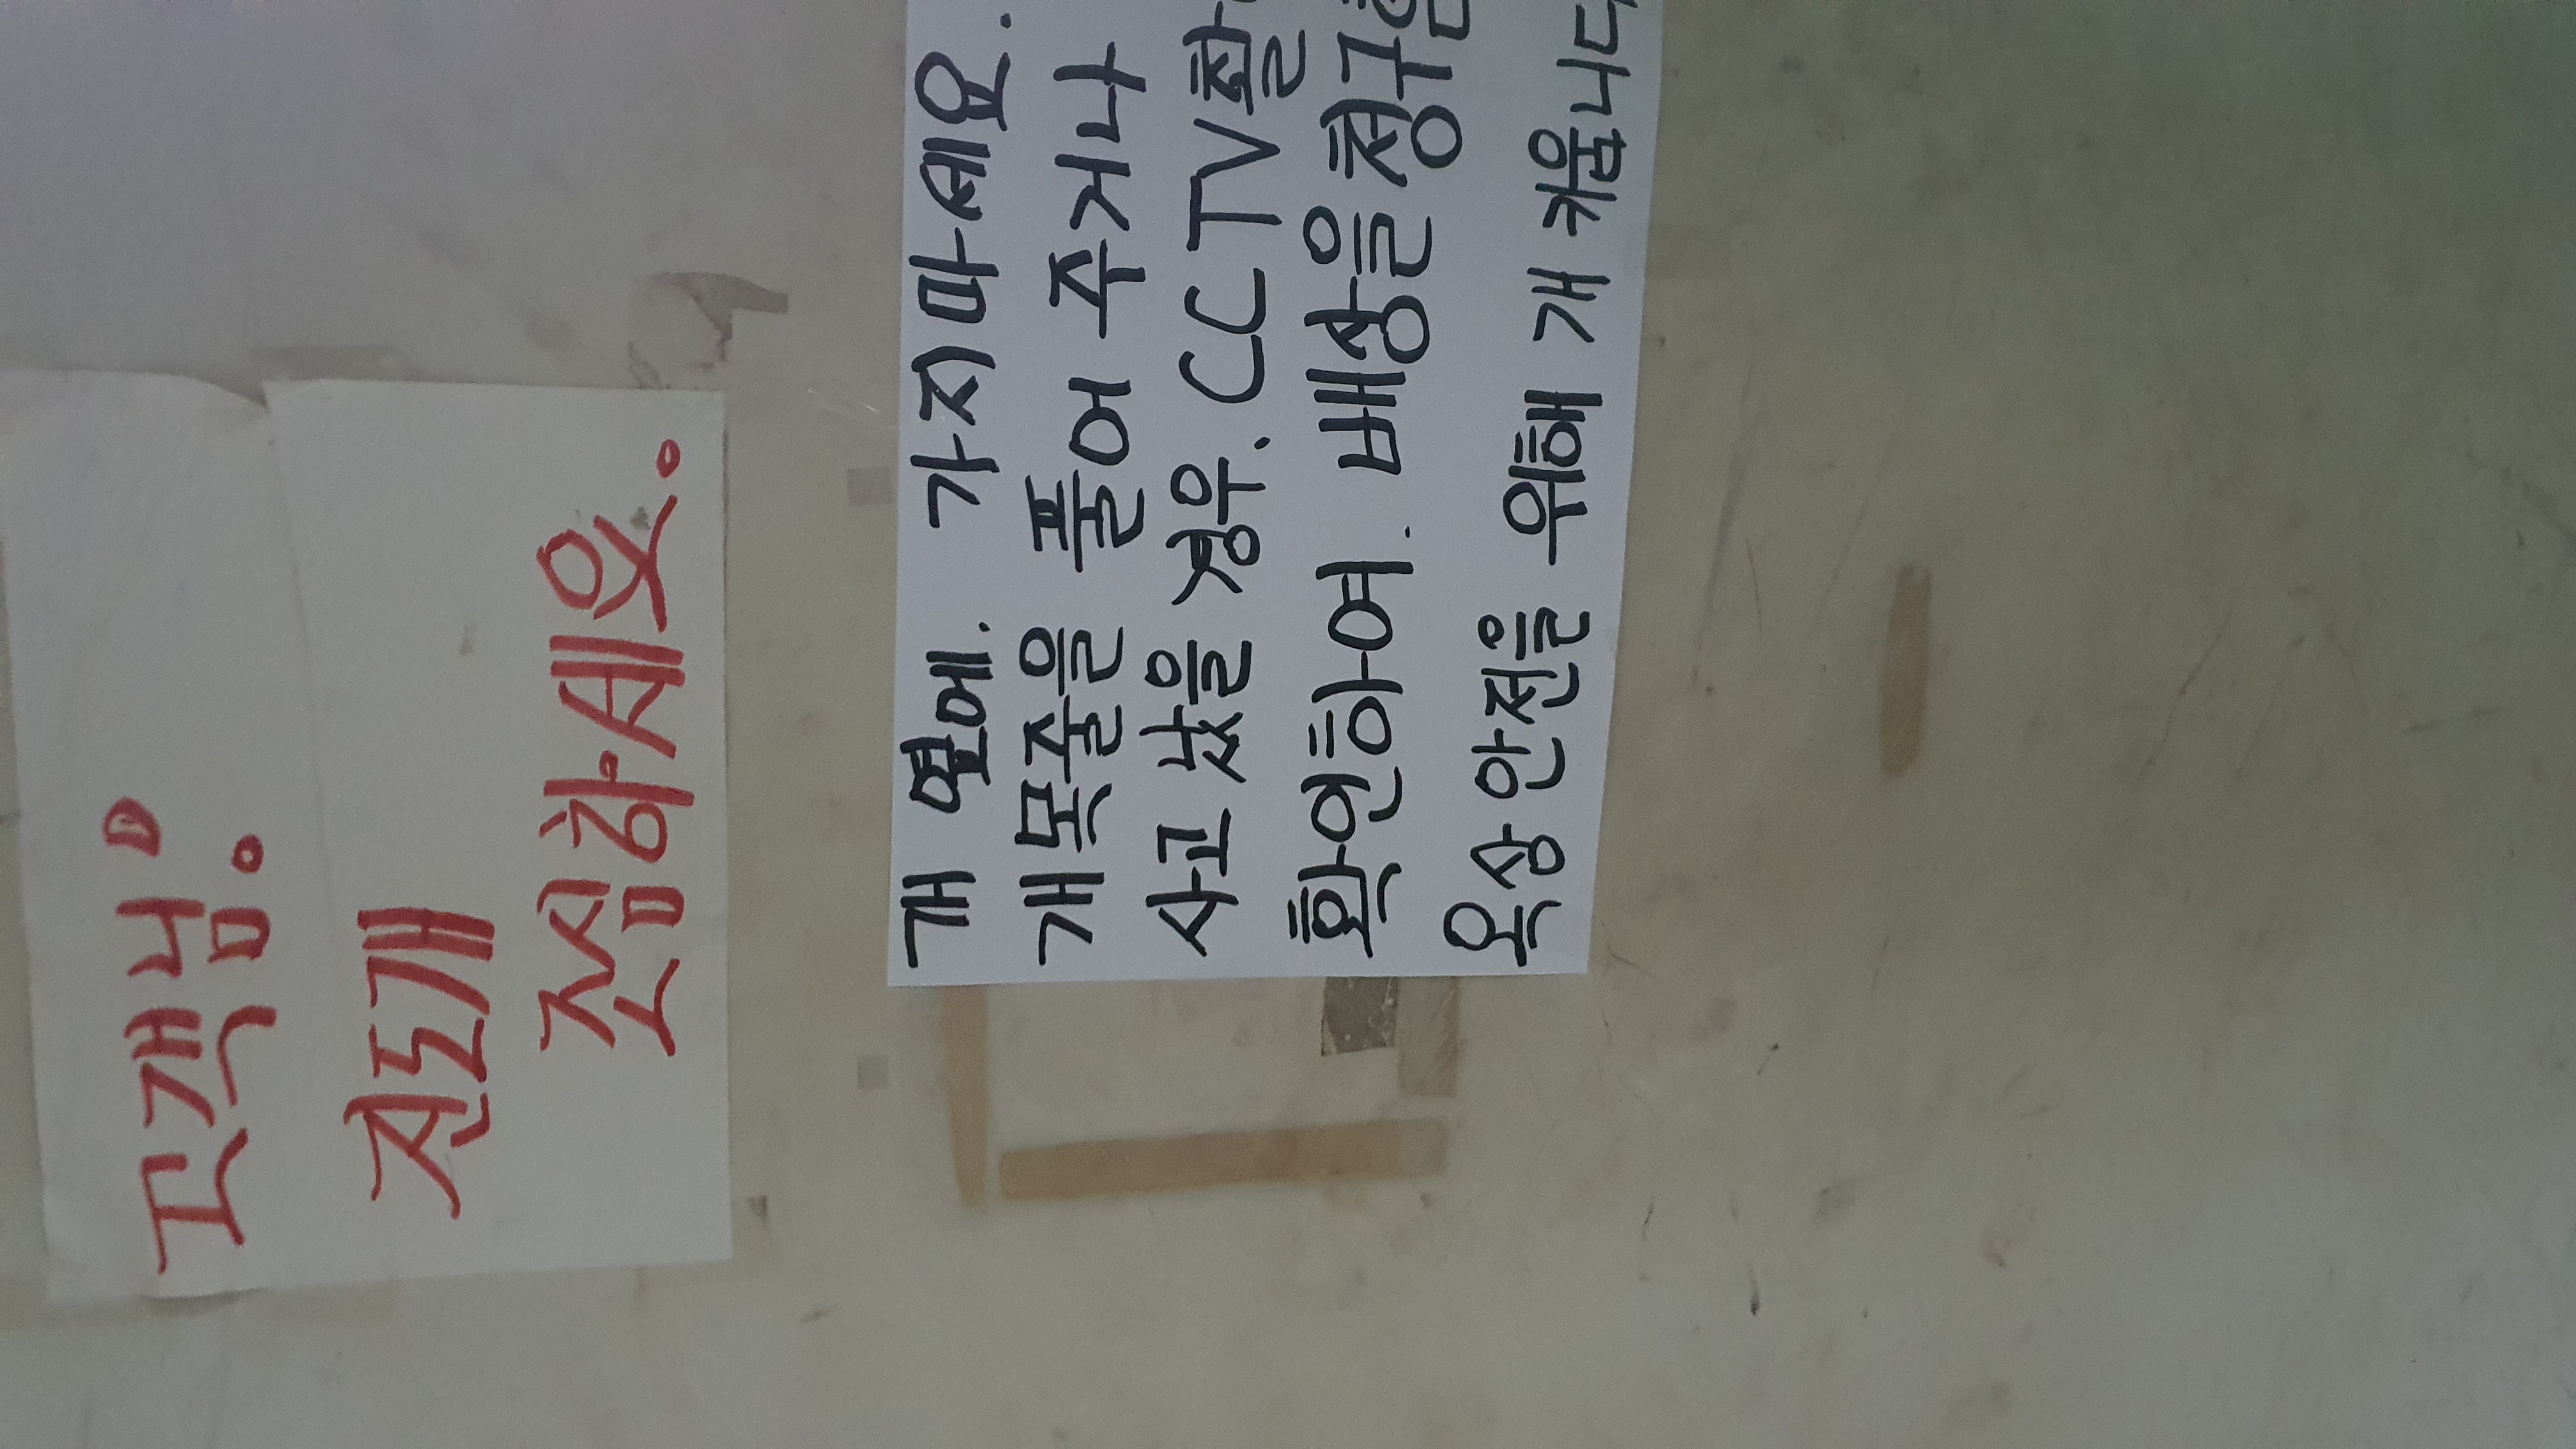 고객님!
진도개
조심하세요.
개 옆에. 가지마세요.
개목줄을 풀어 주거나
사고 났을 경우. CCTV
확인하여. 배상을 청구
옥상안전을 위해 개 키움니다